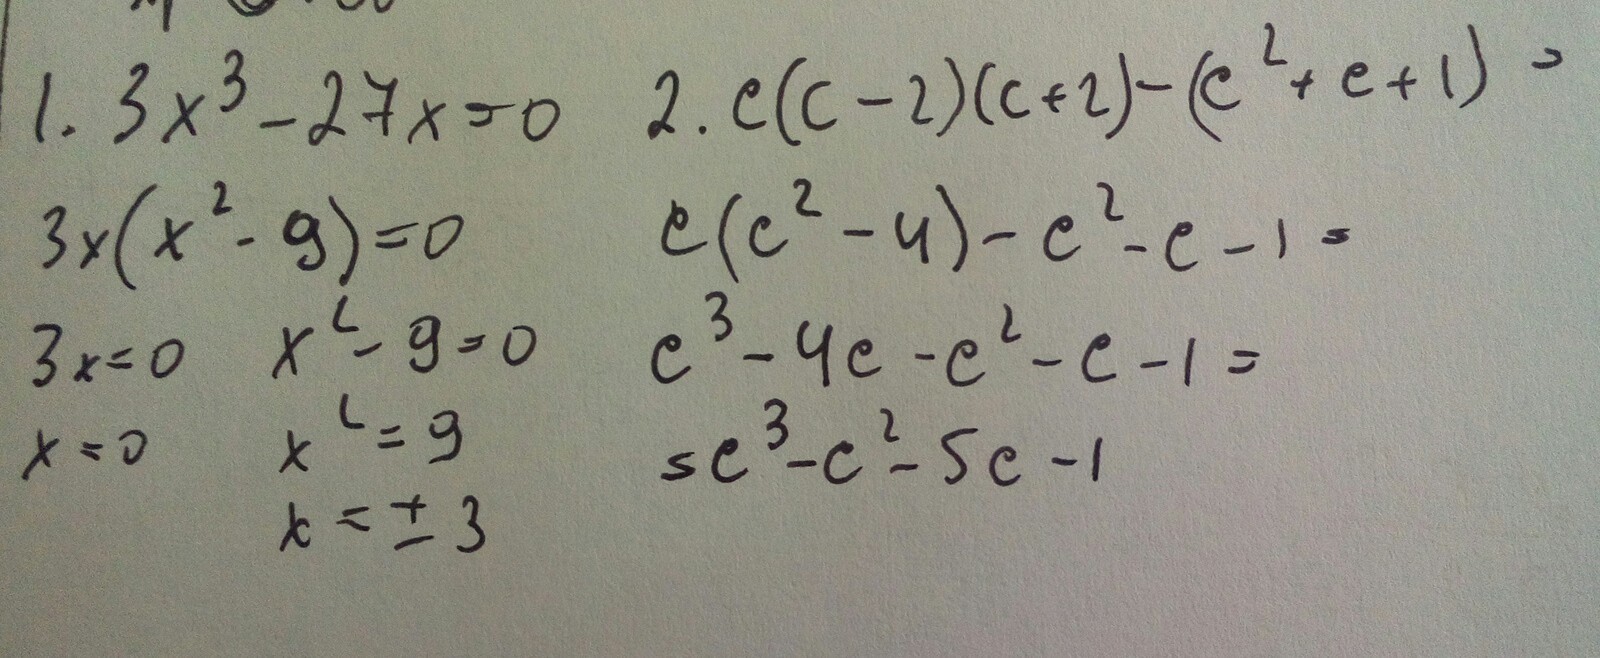 1. 3x³ - 27x = 0
3x(x² - 9) = 0
3x = 0 x² - 9 = 0
x = 0 x² = 9
x = ± 3
2. c(c - 2)(c + 2) - (c² + c + 1) =
c(c² - 4) - c² - c - 1 =
c³ - 4c - c² - c - 1 =
= c³ - c² - 5c - 1